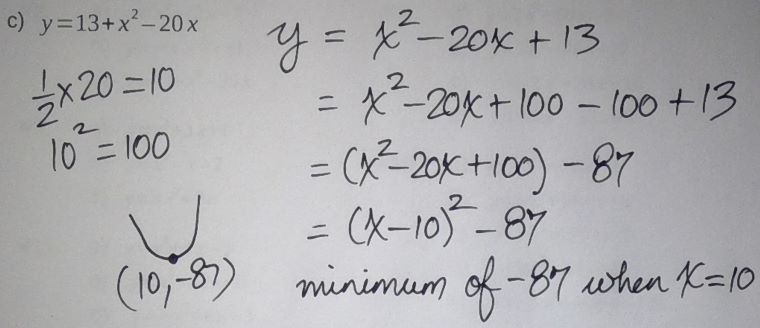 c) y=13+x²−20x
½×20=10
10²=100
y = x²−20x+13
= x²−20x+100−100+13
= (x²−20x+100)−87
= (x−10)²−87
(10,−87)
minimum of −87 when x=10